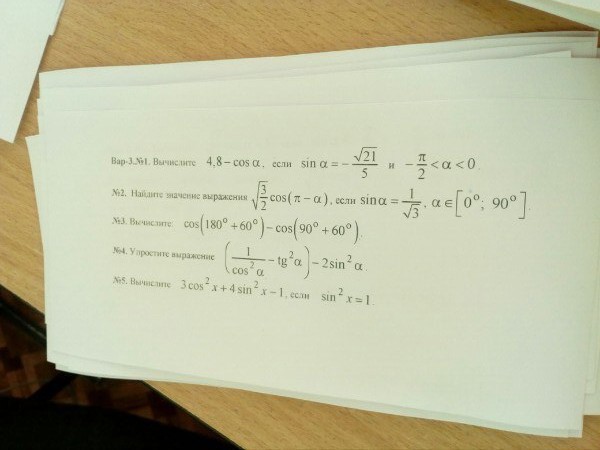 Вар-3.№1. Вычислите 4,8 − cos α, если sin α = −√21/5 и −π/2 < α < 0.
№2. Найдите значение выражения √(3/2) cos(π − α), если sin α = 1/√3, α ∈ [0°; 90°].
№3. Вычислите: cos(180° + 60°) − cos(90° + 60°).
№4. Упростите выражение (1/cos²α − tg²α) − 2sin²α.
№5. Вычислите 3cos²x + 4sin²x − 1, если sin²x = 1.